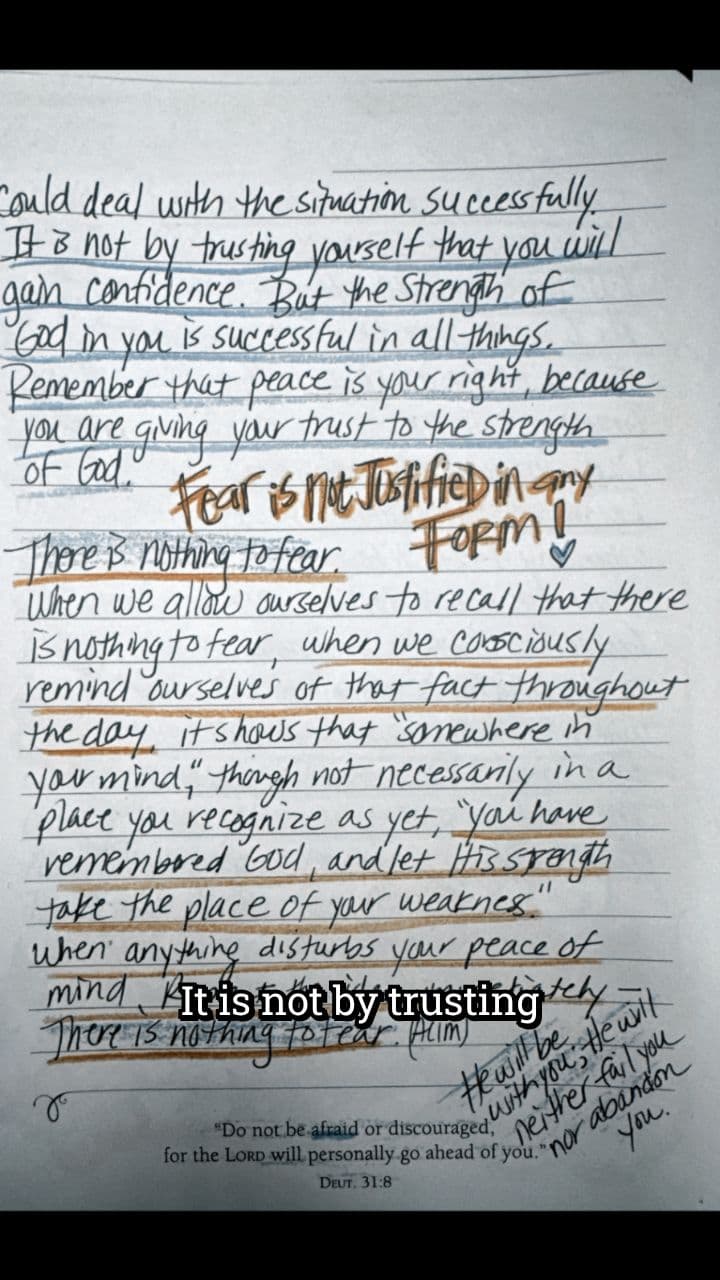 could deal with the situation successfully.
It is not by trusting yourself that you will
gain confidence. But the strength of
God in you is successful in all things.
Remember that peace is your right, because
you are giving your trust to the strength
of God."
Fear is not Justified in any
FORM!
There is nothing to fear.
When we allow ourselves to recall that there
is nothing to fear, when we consciously
remind ourselves of that fact throughout
the day, it shows that "somewhere in
your mind," though not necessarily in a
place you recognize as yet, "you have
remembered God, and let His strength
take the place of your weakness."
When anything disturbs your peace of
mind,
It is not by trusting
There is nothing to fear. (ACIM)
He will be
with you; He will
neither fail you
nor abandon
you.
"Do not be afraid or discouraged,
for the LORD will personally go ahead of you."
DEUT. 31:8